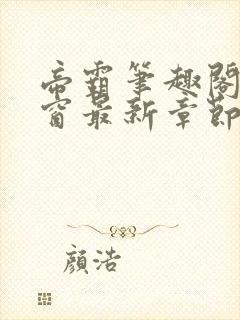 帝霸筆趣閣
窗最新章節
顏浩